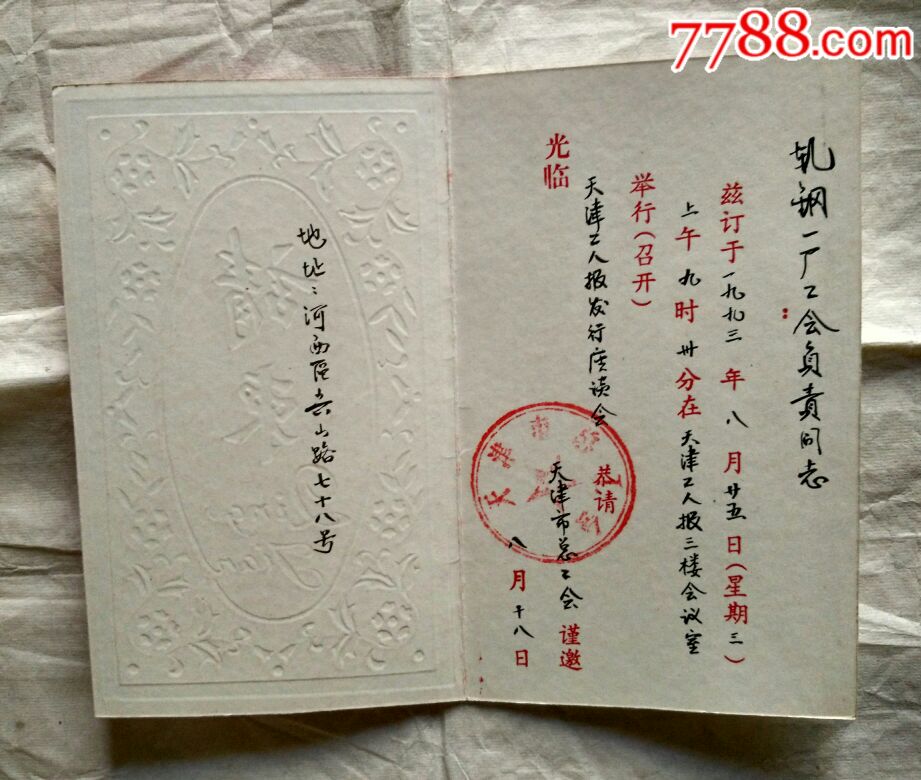 7788.com
轧钢一厂工会负责同志：
兹订于一九九三年八月廿五日（星期三）
上午九时卅分在天津工人报三楼会议室
举行（召开）
天津工人报发行座谈会
恭请
光临
天津市总工会 谨邀
八月十八日
天津市总工会
地址：河西區云山路七十八号
请柬